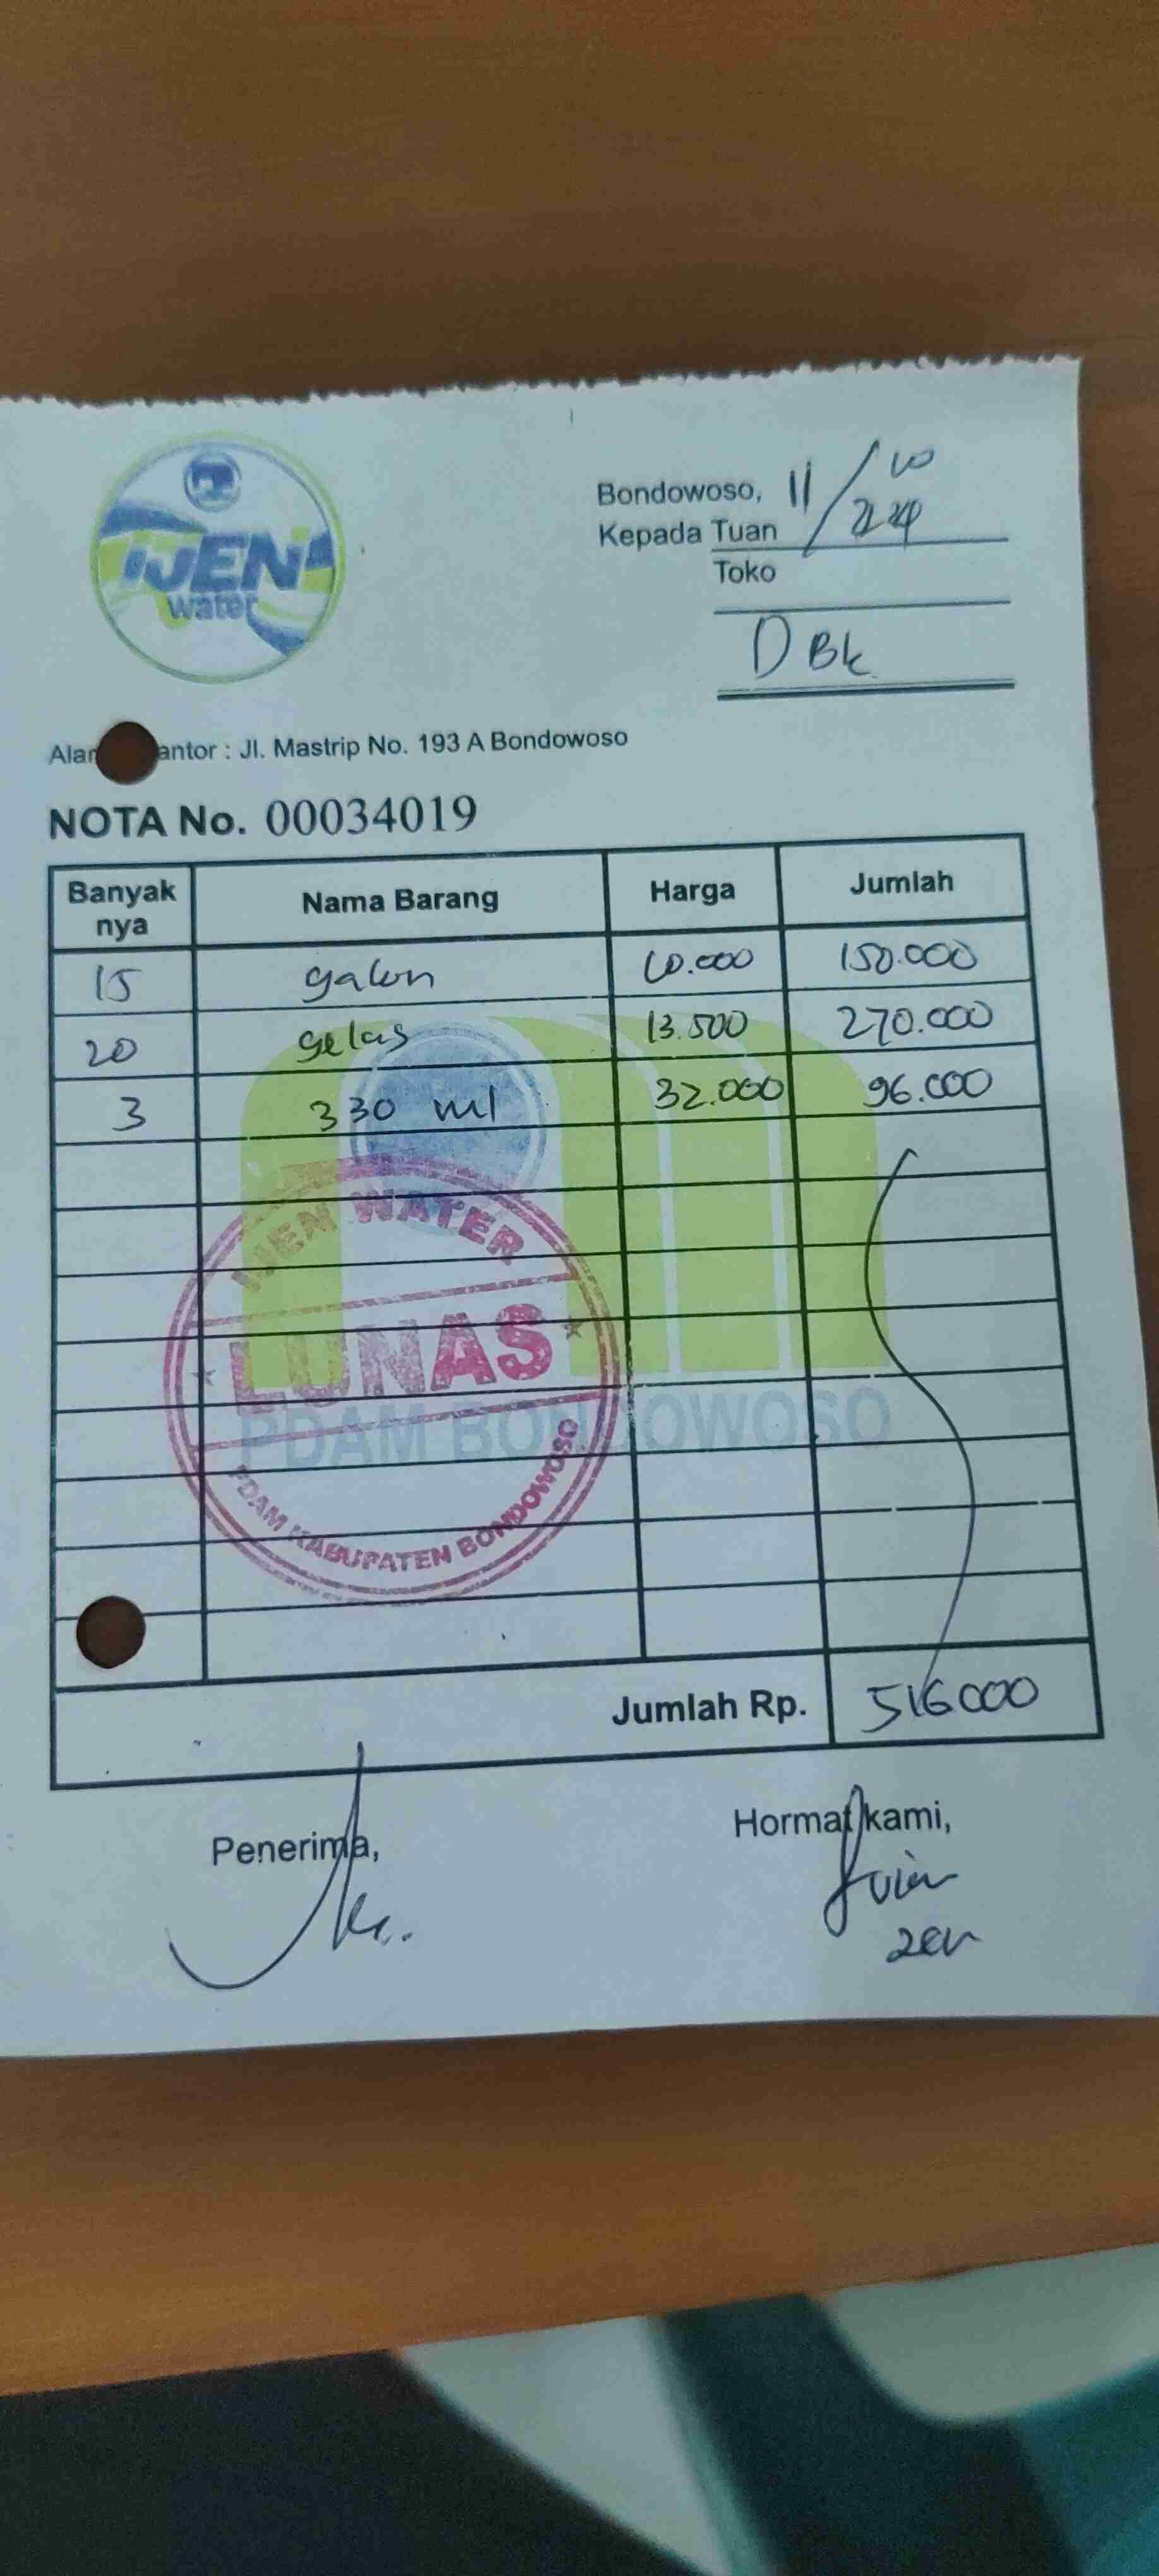 IJEN
water
Bondowoso, 11/10
Kepada Tuan
Toko
DBk
Kantor : Jl. Mastrip No. 193 A Bondowoso
NOTA No. 00034019
Banyak nya Nama Barang Harga Jumlah
15 galon 10.000 150.000
20 gelas 13.500 270.000
3 330 ml 32.000 96.000
IJEN WATER
LUNAS
PDAM BONDOWOSO
PDAM KABUPATEN BONDOWOSO
Jumlah Rp. 516000
Penerima,
Hormat kami,